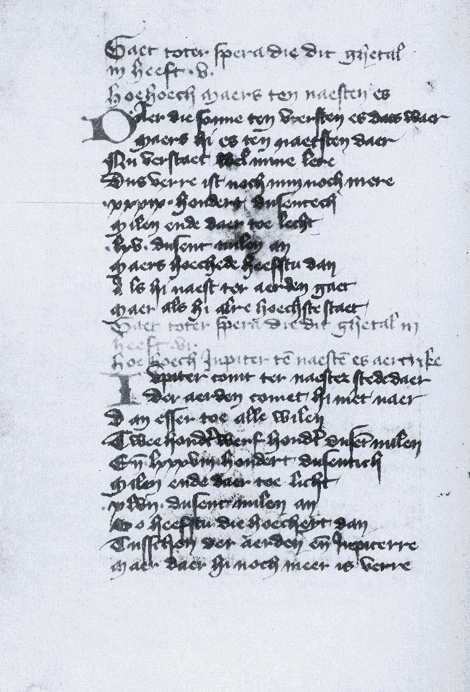 Gaet toter spera die dit ghetal
in heeft .v.
hoe hoech maers ten naesten es
Daer die sonne ten versten es dats waer
maers hi es ten naesten daer
Nu verstaet wel mine lere
Dus verre ist noch min noch mere
hondert dusentech
milen ende daer toe lecht
.lxv. dusent milen an
maers hoechede heefstu dan
Als hi naest ter aerden gaet
maer als hi alre hoechste staet
Gaet toter spera die dit ghetal in
heeft .vi.
hoe hoech Jupiter tē naestē es aertrike
Jupiter comt ter naester stede daer
der aerden comet hi niet naer
Dan esser toe alle wilen
Twee hondert werf hondert dusēt milen
Eñ lxxxviii hondert dusentich
milen ende daer toe licht
.xlvii. dusent milen an
So heefstu die hoecheyt dan
Tusschen der aerden eñ Jupiterre
maer daer hi noch meer is verre